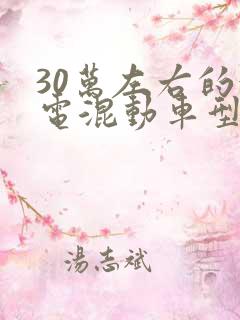 30萬左右的
電混動車型
湯志斌